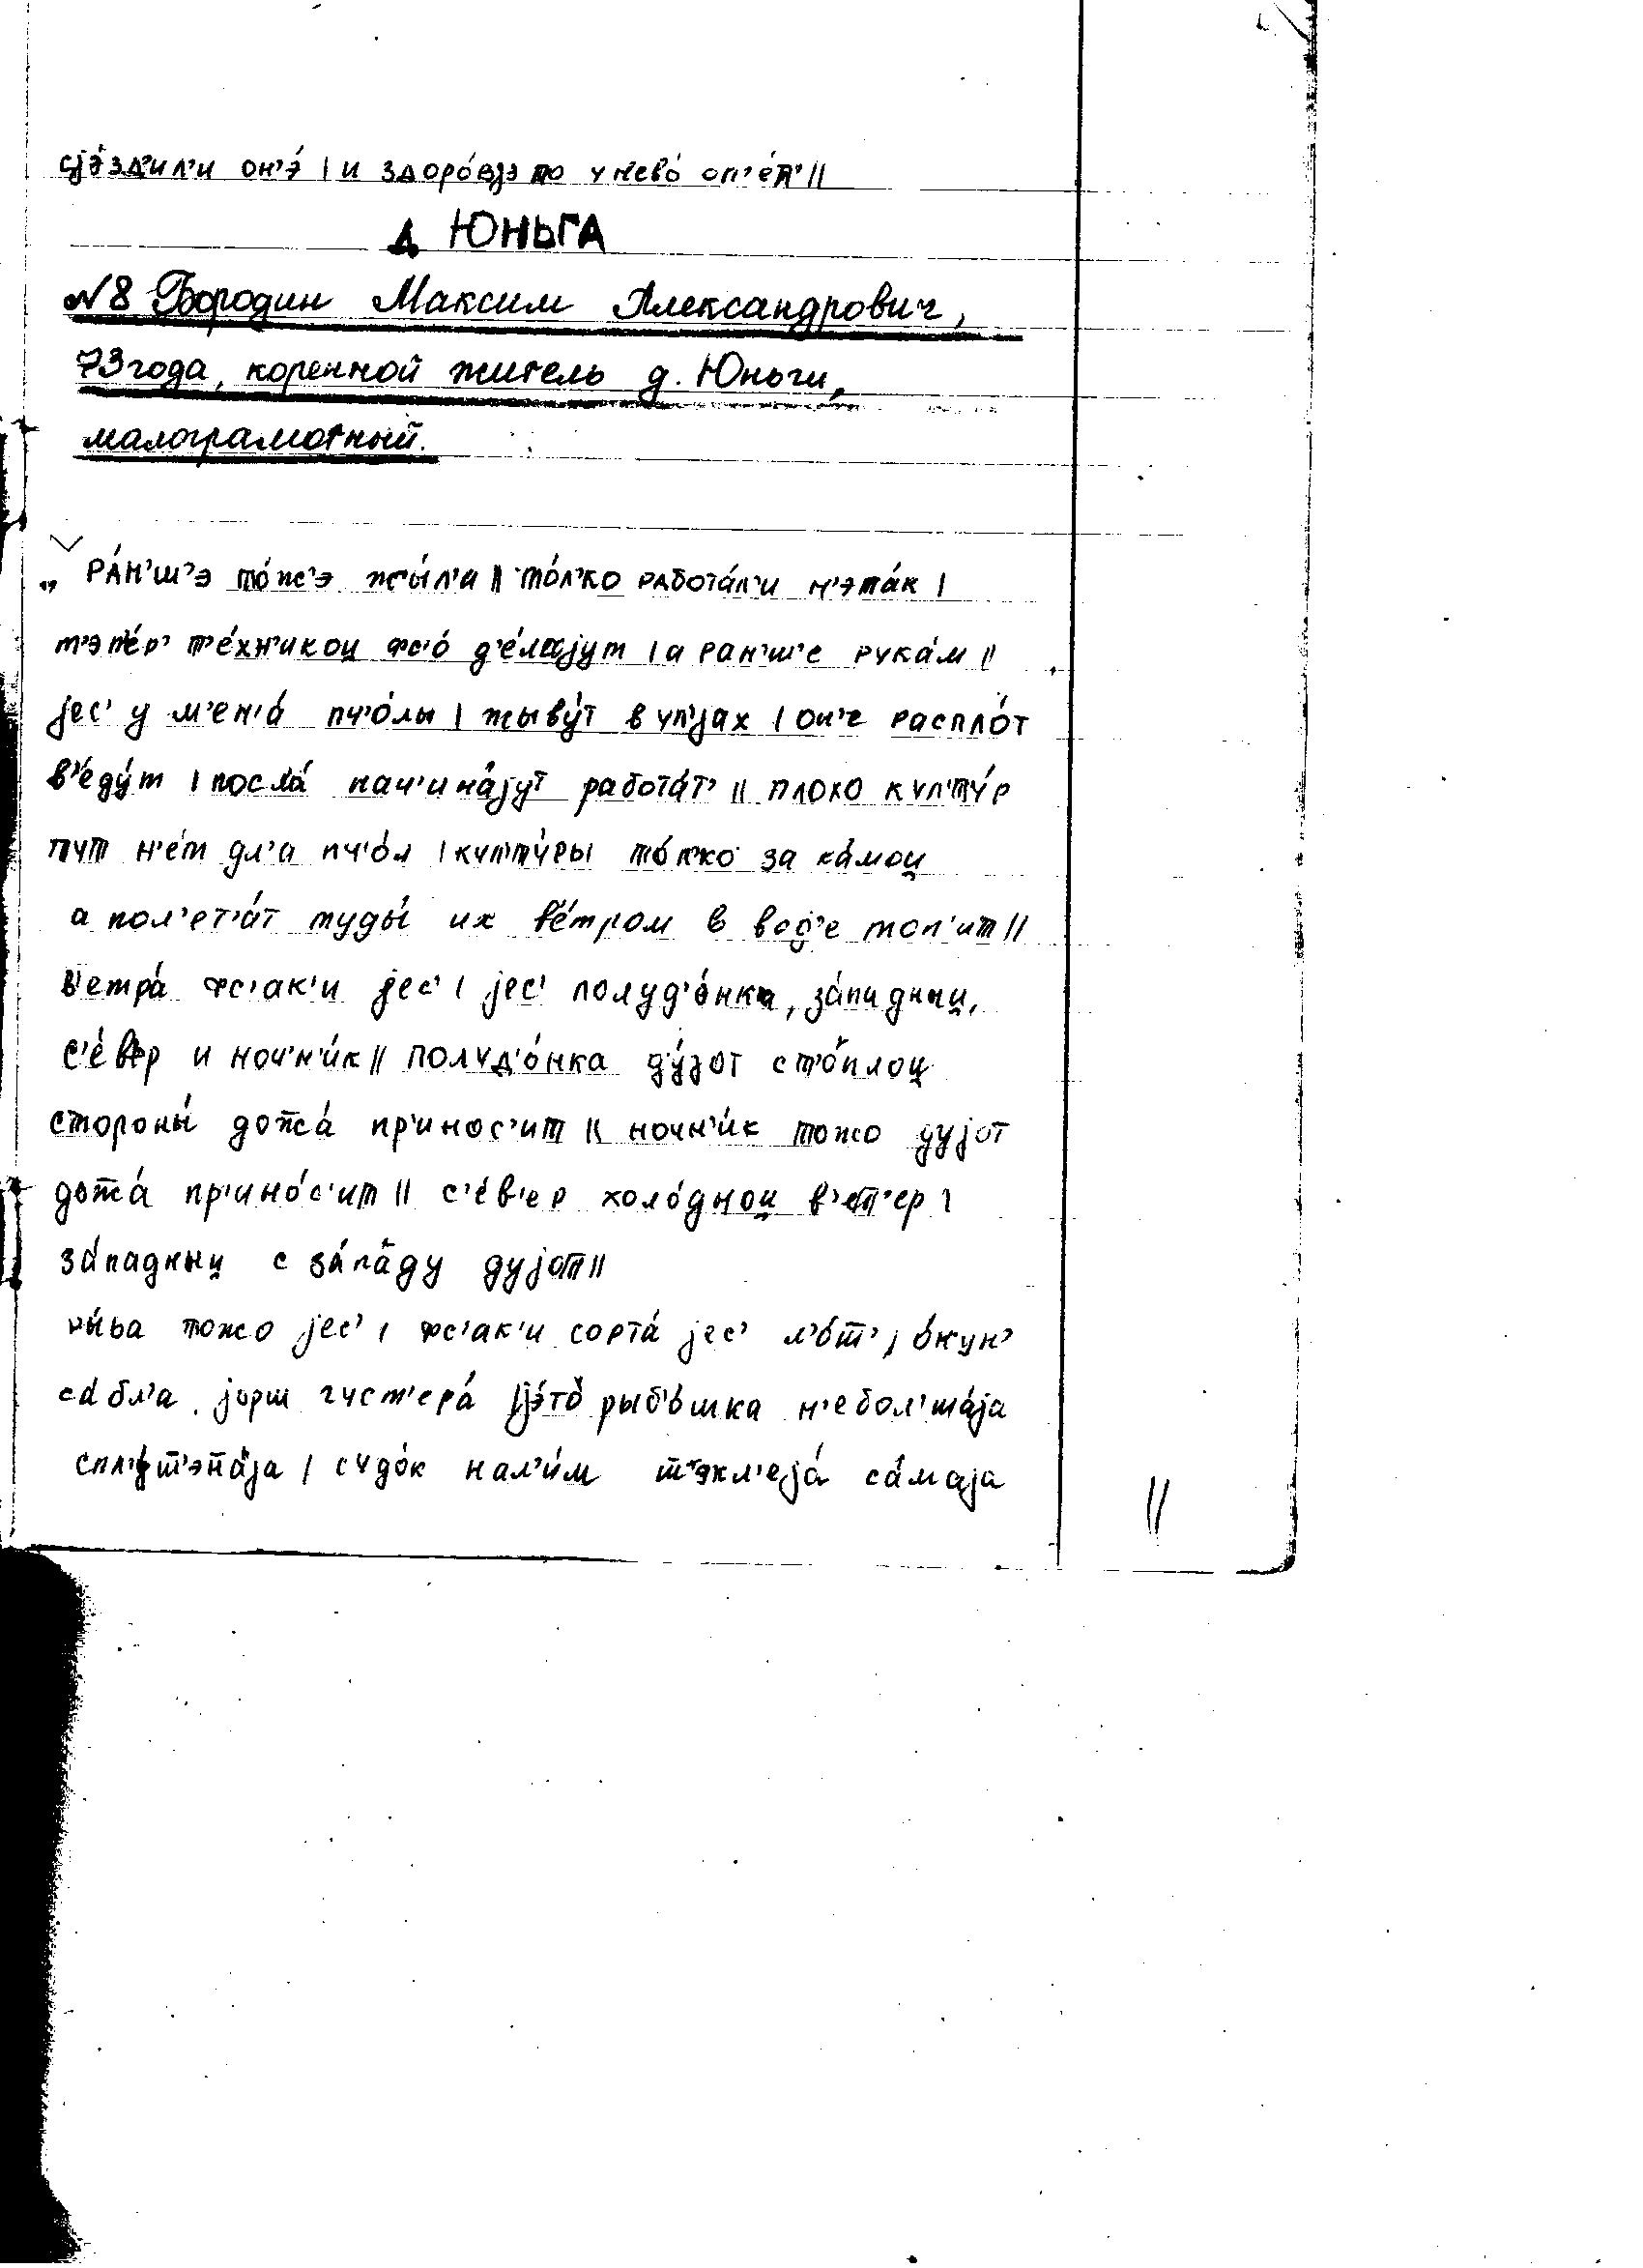 сjэ́зд'ил'и он'э́ | и здоро́вjэ то у нево́ оп'е́т' ||
д. ЮНЬГА
№8 Бородин Максим Александрович,
73 года, коренной житель д. Юньги,
малограмотный.
„ РА́Н'Ш'Э то́ж'э жы́л'и || то́л'ко работа́л'и н'эта́к |
т'эпе́р' т'е́хн'икои̯ фс'о́ д'е́лаjут | а ран'ш'е рука́м ||
jес' у м'ен'а́ пч'о́лы | жыву́т в ул'jах | он'е распло́т
в'еду́т | посла́ нач'ина́jут работа́т' || плохо кул'ту́р
тут н'е́т дл'а пч'о́л | кул'ту́ры то́л'ко за ка́мои̯
а пол'ет'а́т туды́ их ве́тром в вод'е топ'ит ||
в'етра́ фс'ак'и jес' | jес' полуд'о́нка, за́падныи̯,
с'е́вер и ноч'н'и́к || полуд'о́нка ду́jот с т'о́плои̯
стороны́ дожжа́ пр'инос'ит || ночн'и́к тожо дуjот
дожжа́ пр'ино́с'ит || с'е́в'ер холо́днои̯ в'ет'ер |
за́падныи̯ с за́паду дуjот ||
ры́ба тожо jес' | фс'ак'и сорта́ jес' л'о́т' | о́кун'
са́бл'а jорш густ'ера́ | jэ́то рыб'о́шка н'ебол'ша́jа
судо́к нал'и́м са́маjа
11